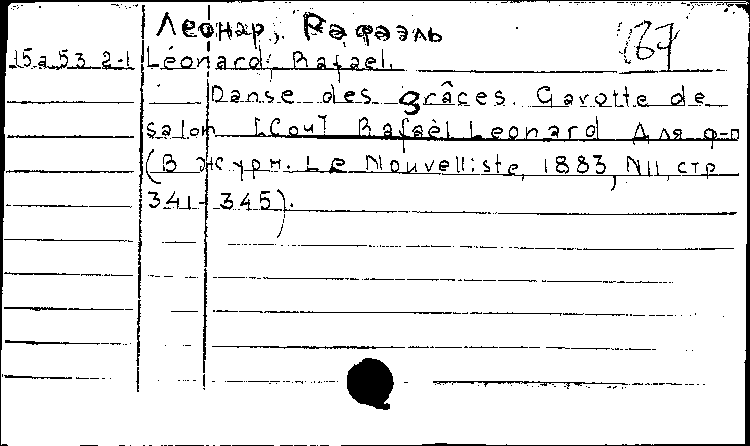 Леонар, Рафаэль 167
15а 53 2-1 Léonard, Rafael.
Danse des grâces. Gavotte de
salon [Соч] Rafaèl Leonard Для ф-п
(В журн. Le Nouvelliste, 1883, N11, стр
341-345).